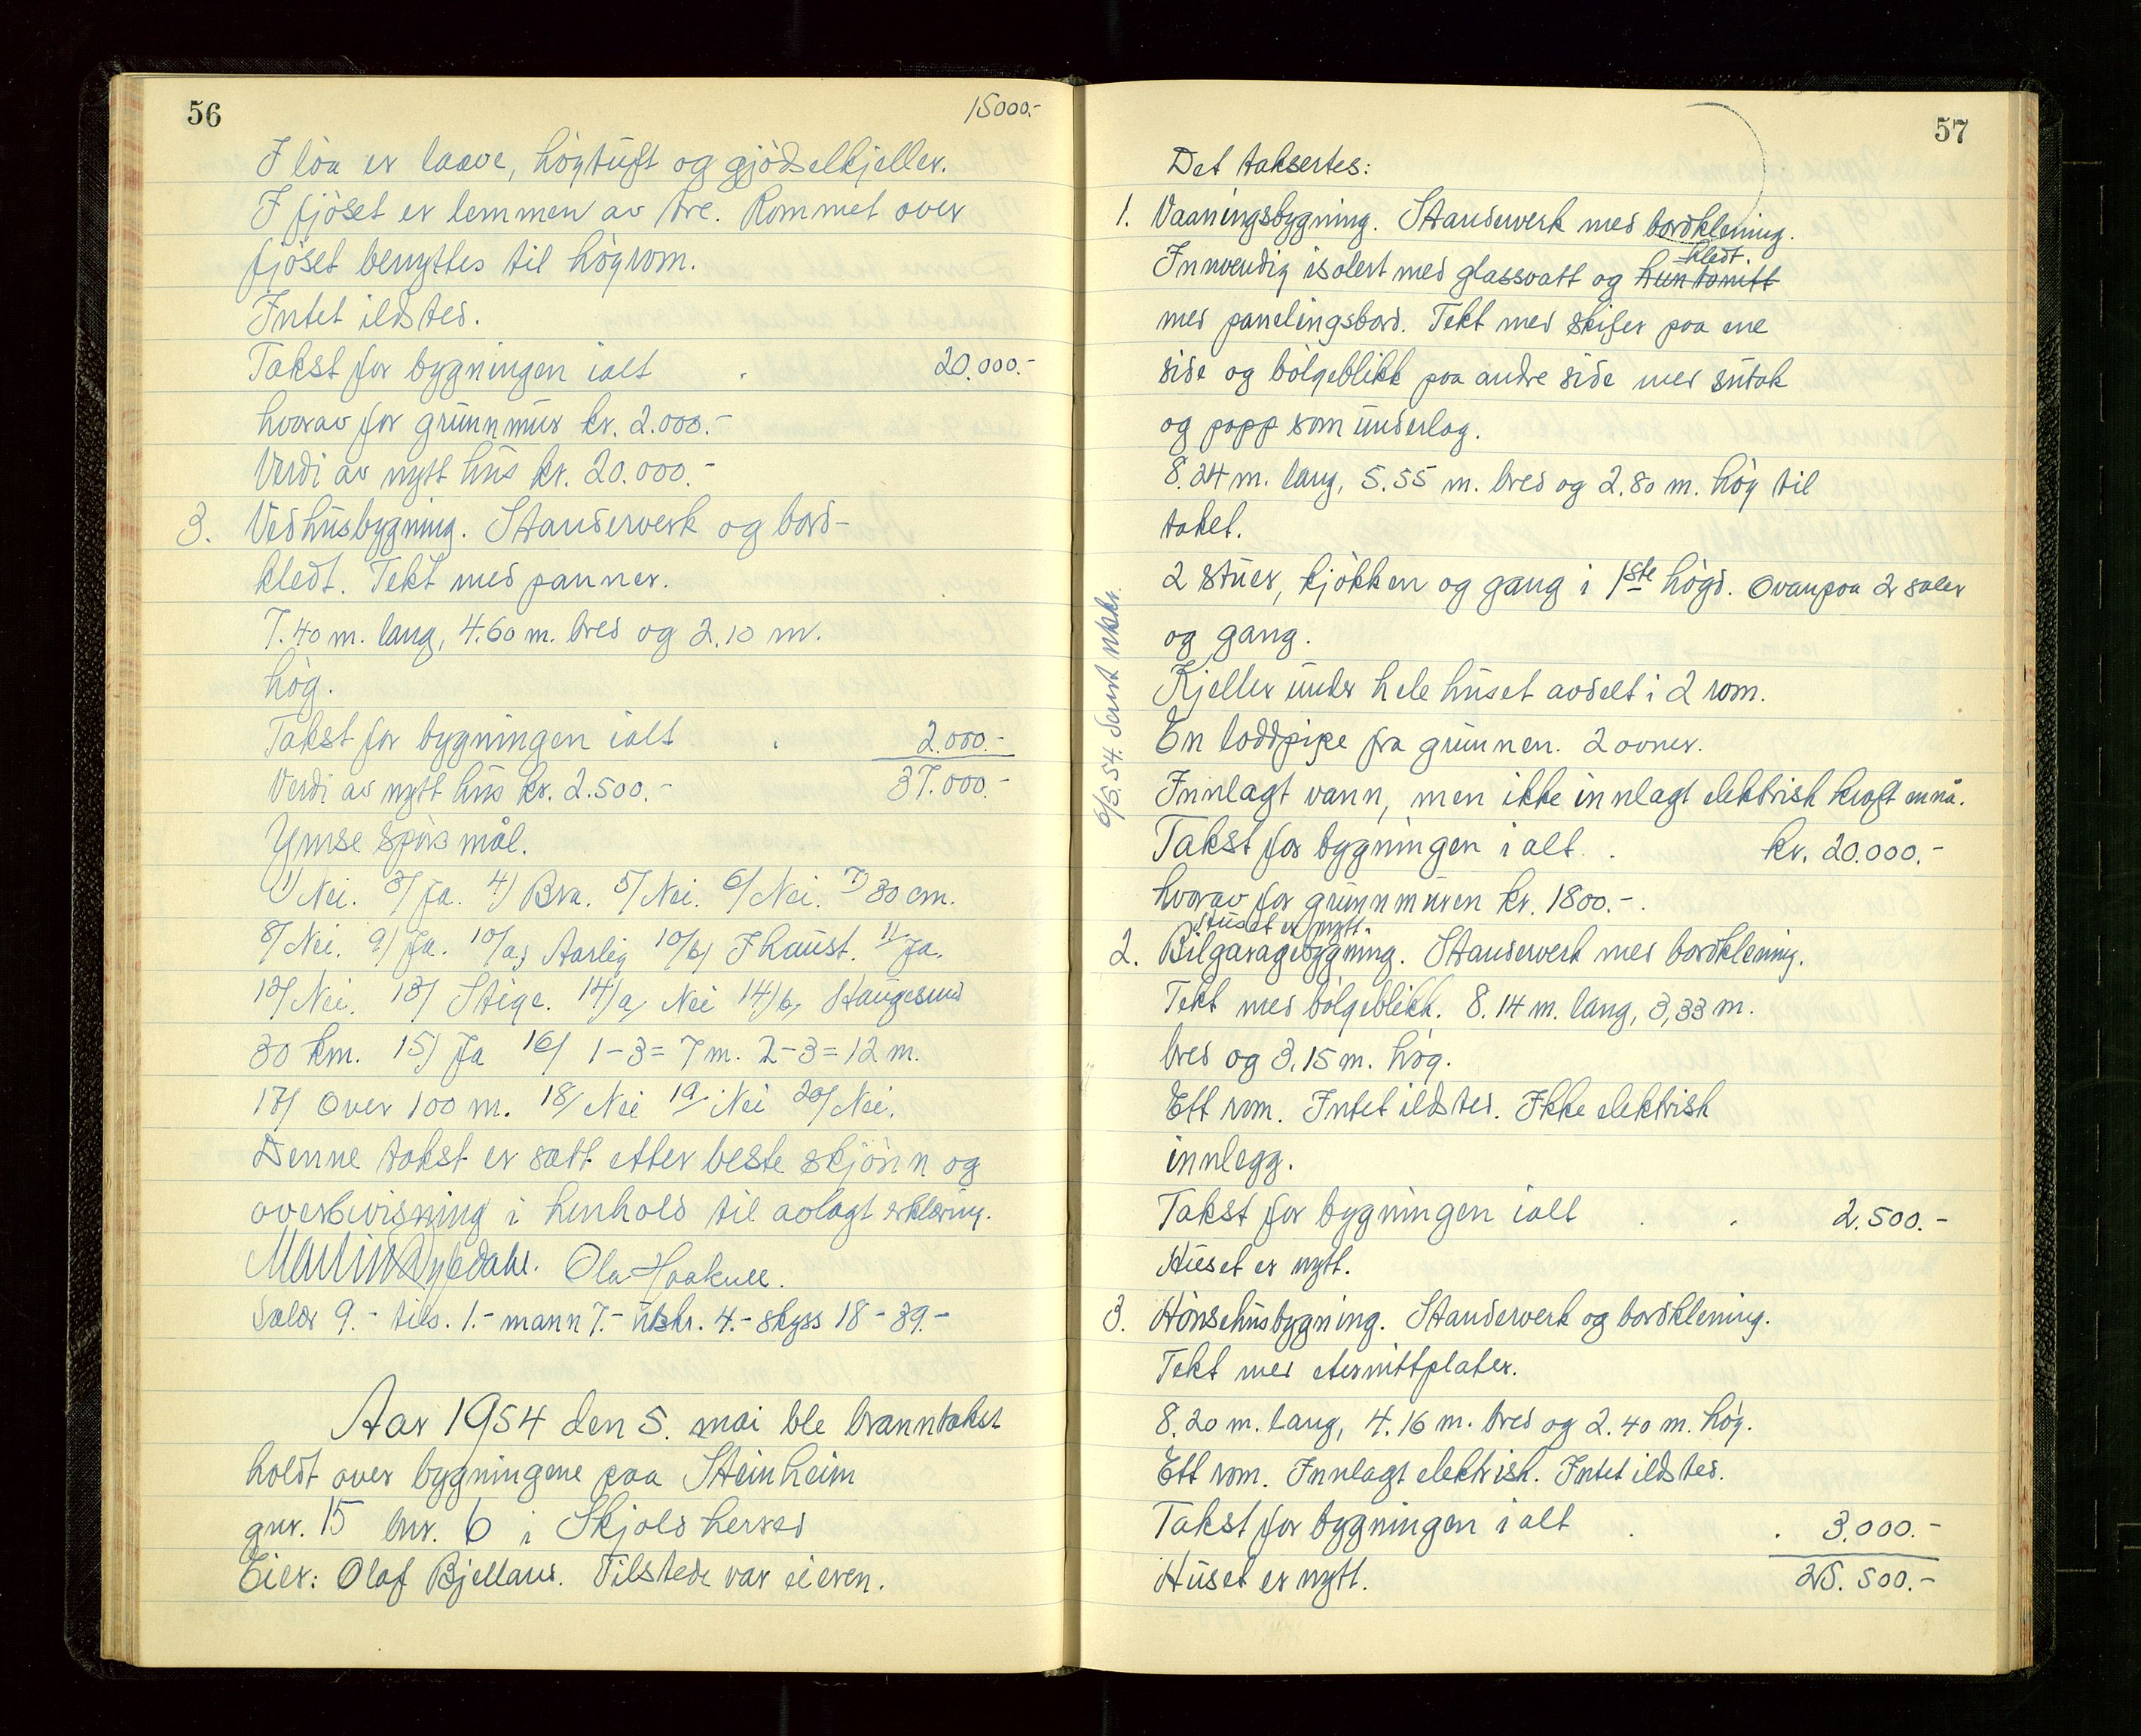 56
15000.-
I löa er laave, höytuft og gjödselkjeller.
I fjöset er lemmen av tre. Rommet over
fjöset benyttes til höyrom.
Intet ildsted.
Takst for bygningen ialt . 20.000.-
hvorav for grunnmur kr. 2.000.-
Verdi av nytt hus kr. 20.000.-
3. Vedhusbygning. Standerverk og bord-
kledt. Tekt med panner.
7.40 m. lang, 4.60 m. bred og 2.10 m.
hög.
Takst for bygningen ialt . 2.000.-
Verdi av nytt hus kr. 2.500.- 37.000.-
Ymse spörsmål.
1/ Nei. 3/ Ja. 4/ Bra. 5/ Nei. 6/ Nei. 7/ 30 cm.
8/ Nei. 9/ Ja. 10/a/ Aarlig 10/b/ I haust. 11/ Ja.
12/ Nei. 13/ Stige. 14/a/ Nei 14/b/ Haugesund
30 km. 15/ Ja 16/ 1-3 = 7 m. 2-3 = 12 m.
17/ Over 100 m. 18/ Nei 19/ Nei 20/ Nei.
Denne takst er satt etter beste skjönn og
overbevisning i henhold til avlagt erklæring.
Martin Dybdahl. Ola Haakull.
9.- tils. 1.- mann 7.- utskr. 4.- skyss 18 - 39.-
Aar 1954 den 5. mai ble branntakst
holdt over bygningene paa Steinheim
gnr. 15 bnr. 6 i Skjold herred
Eier: Olaf Bjelland. Tilstede var eieren.
57
Det taksertes:
1. Vaaningsbygning. Standerverk med bordkledning.
Innvendig isolert med glassvatt og huntonitt kledt.
med panelingsbord. Tekt med skifer paa ene
side og bölgeblikk paa andre side med sutak
og papp som underlag.
8.24 m. lang, 5.55 m. bred og 2.80 m. höy til
taket.
2 stuer, kjökken og gang i 1ste högd. Ovanpaa 2 saler
og gang.
Kjeller under hele huset avdelt i 2 rom.
En loddpipe fra grunnen. 2 ovner.
Innlagt vann, men ikke innlagt elektrisk kraft ennå.
Takst for bygningen ialt . kr. 20.000.-
hvorav for grunnmuren kr. 1800.-.
Huset er nytt.
2. Bilgaragebygning. Standerverk med bordkledning.
Tekt med bölgeblikk. 8.14 m. lang, 3,33 m.
bred og 3.15 m. hög.
Ett rom. Intet ildsted. Ikke elektrisk
innlegg.
Takst for bygningen ialt . . 2.500.-
Huset er nytt.
3. Hönsehusbygning. Standerverk og bordkledning.
Tekt med eternittplater.
8.20 m. lang, 4.16 m. bred og 2.40 m. hög.
Ett rom. Innlagt elektrisk. Intet ildsted.
Takst for bygningen ialt . . 3.000.-
Huset er nytt. 25.500.-
6/5.54. Sendt utskr.